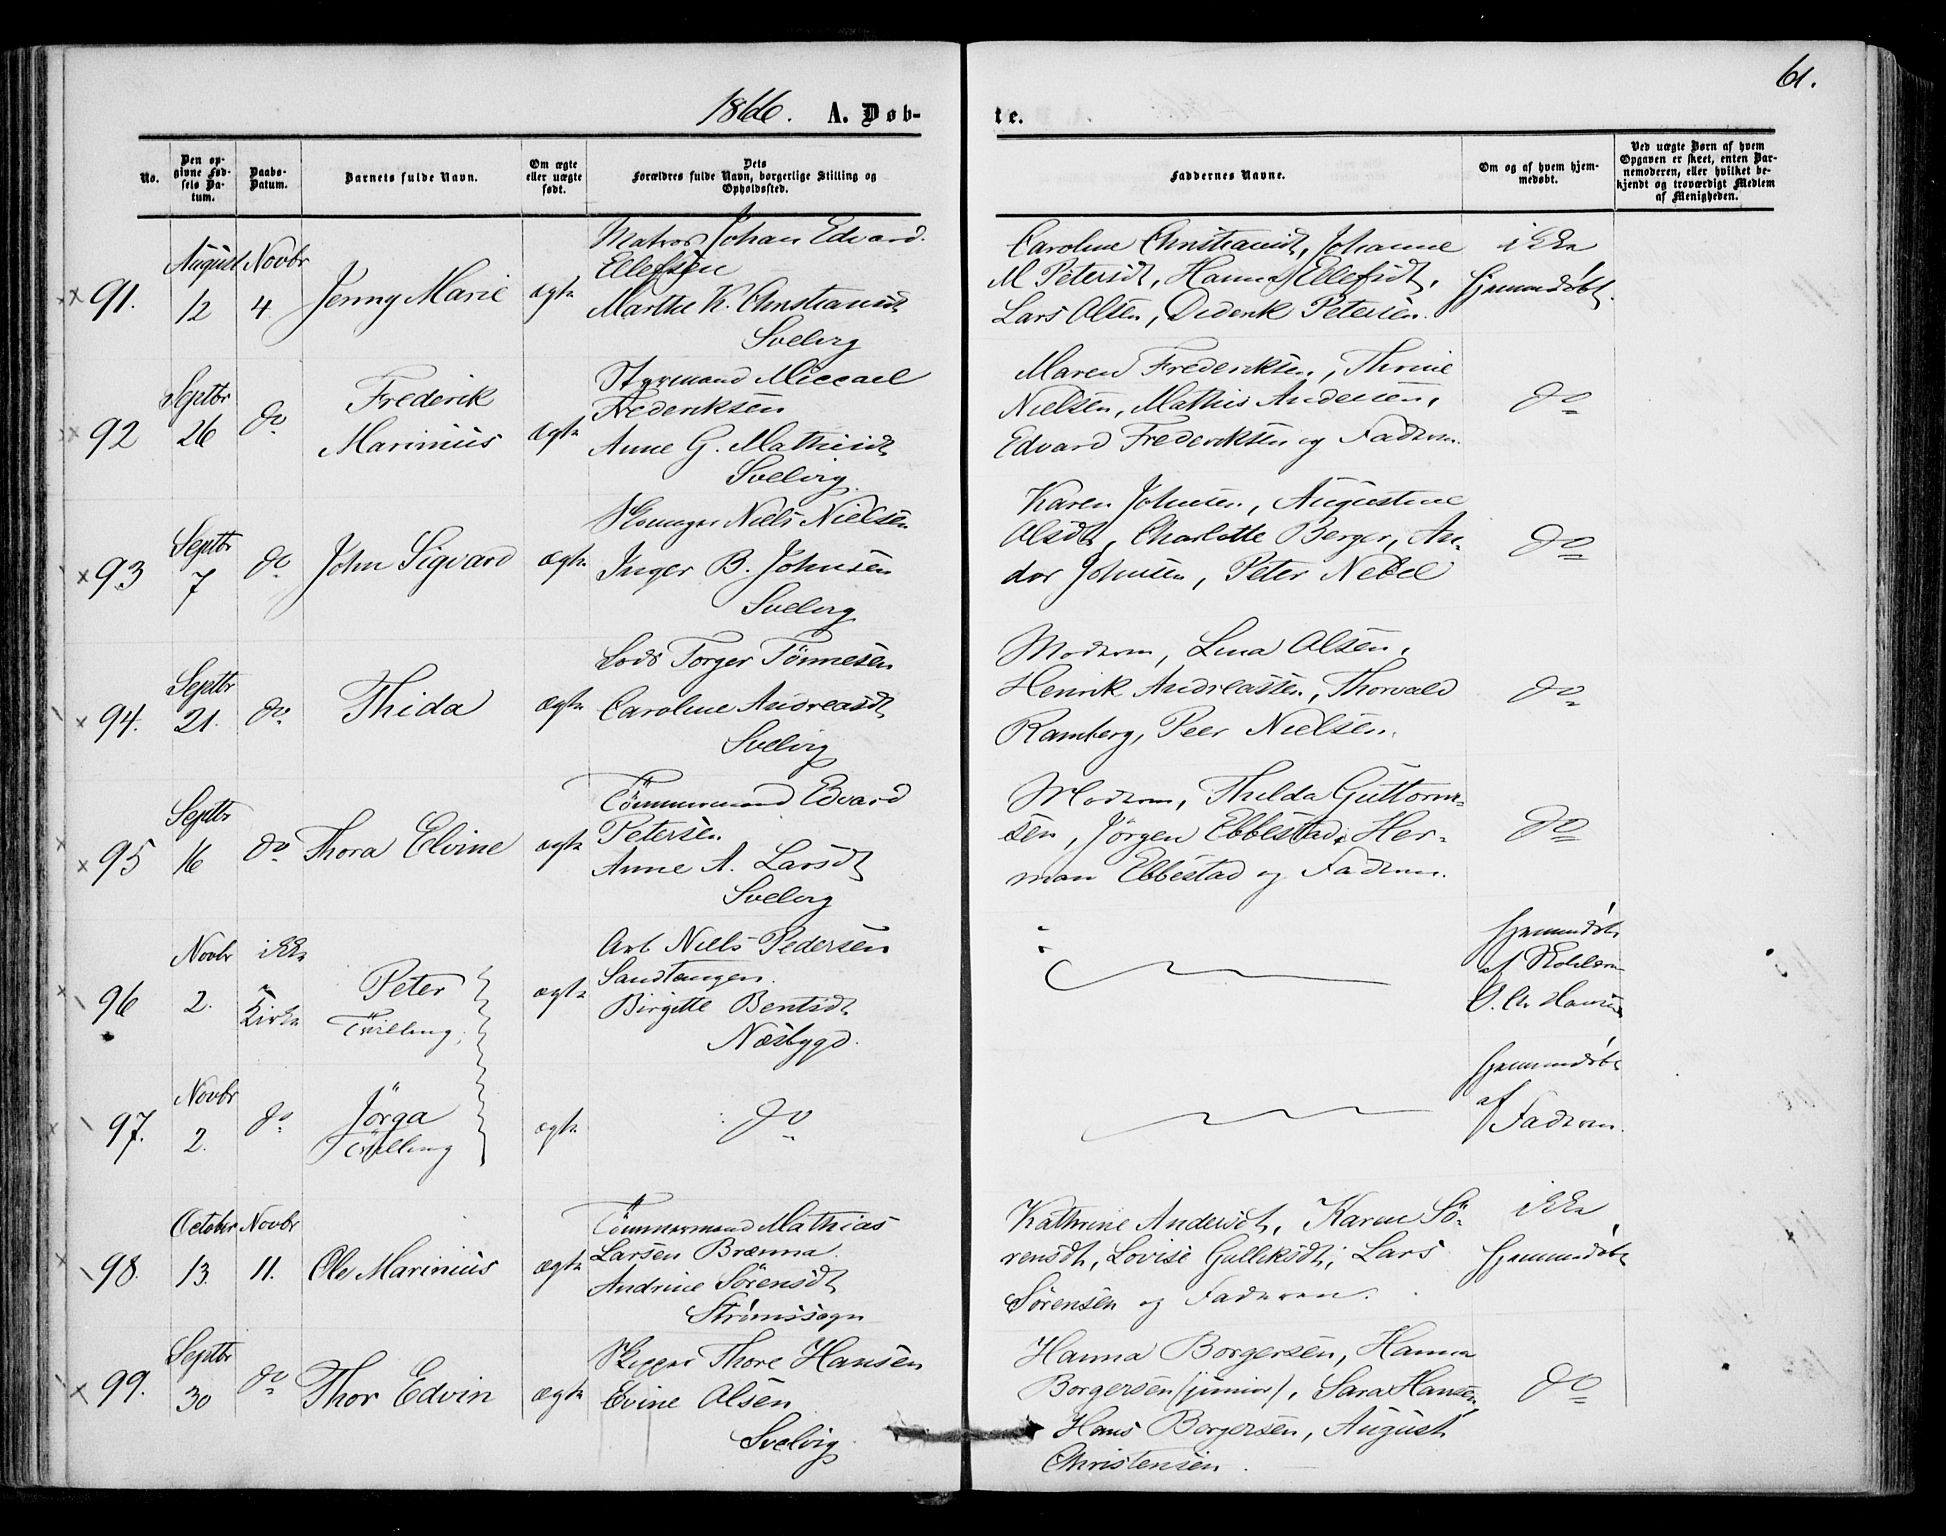 61.
1866. A. Døb-
te.
No.
Den op-
givne Fød-
sels Da-
tum.
Daabs-
Datum.
Barnets fulde Navn.
Om ægte
eller uægte
født.
Dets
Forældres fulde Navn, borgerlige Stilling og
Opholdssted.
Faddernes Navne.
Om og af hvem hjem-
medøbt.
Ved uægte Børn af hvem
Opgaven er skeet, enten Bar-
nemoderen, eller hvilket be-
kjendt og troværdigt Medlem
af Menigheden.
91.
August
12
Novbr
4
Jenny Marie
ægte
Matros Johan Edvard
Ellefsen
Marthe K. Christiansdt
Svelvig
Caroline Christiansdt, Johanne
M Petersdt, Hanna Ellefsdt,
Lars Olsen, Diderik Petersen.
ikke
hjemmedøbt.
92
Septbr
26
do
Frederik
Marinius
ægte
Styrmand Miccael
Frederiksen
Anne G. Mathisdt
Svelvig.
Maren Frederiksen, Thrine
Nielsen, Mathis Andersen,
Edvard Frederiksen og Faderen.
do
93
Septbr
7
do
John Sigvard
ægte
Niels Nielsen
Inger B. Johnsen
Svelvig
Karen Johnsen, Augustine
Olsdt, Charlotte Berger, An-
dor Johnsen, Peter Nebel
do
94.
Septbr
21.
do
Thida
ægte
Lods Torger Tönnesen
Caroline Andreasdt
Svelvig
Moderen, Lina Olsen,
Henrik Andreassen, Thorvald
Ramberg, Peer Nielsen.
do
95
Septbr
16
do
Thora Elvine
ægte
Tömmermand Edvard
Petersen
Anne A. Larsdt
Svelvig
Moderen, Thilda Guttorm-
sen, Jörgen Ebbestad, Her-
man Ebbestad og Faderen.
do
96
Novbr
2.
ikke
i
Kirke
Peter
Tvilling.
ægte
Arb Niels Pedersen
Sandtangen
Birgitte Bentsdt
Næsbygd.
hjemmedøbt
af Skolelærer
Hansen
97.
Novbr
2.
do
Jörga
Tvilling
ægte
do
hjemmedøbt
af
Faderen.
98.
October
13.
Novbr
11.
Ole Marinius
ægte
Tömmermand Mathias
Larsen Brænna.
Andrine Sörensdt
Strömssogn
Kathrine Andersdt, Karen Sö-
rensdt, Lovise Gulliksdt, Lars
Sörensen og Faderen.
ikke
hjemmedøbt
99.
Septbr
30
do
Thor Edvin
ægte
Skipper Thore Hansen
Evine Olsen
Svelvig
Hanna Borgersen, Hanna
Borgersen (junior), Sara Hansen,
Hans Borgersen, August
Christensen.
do